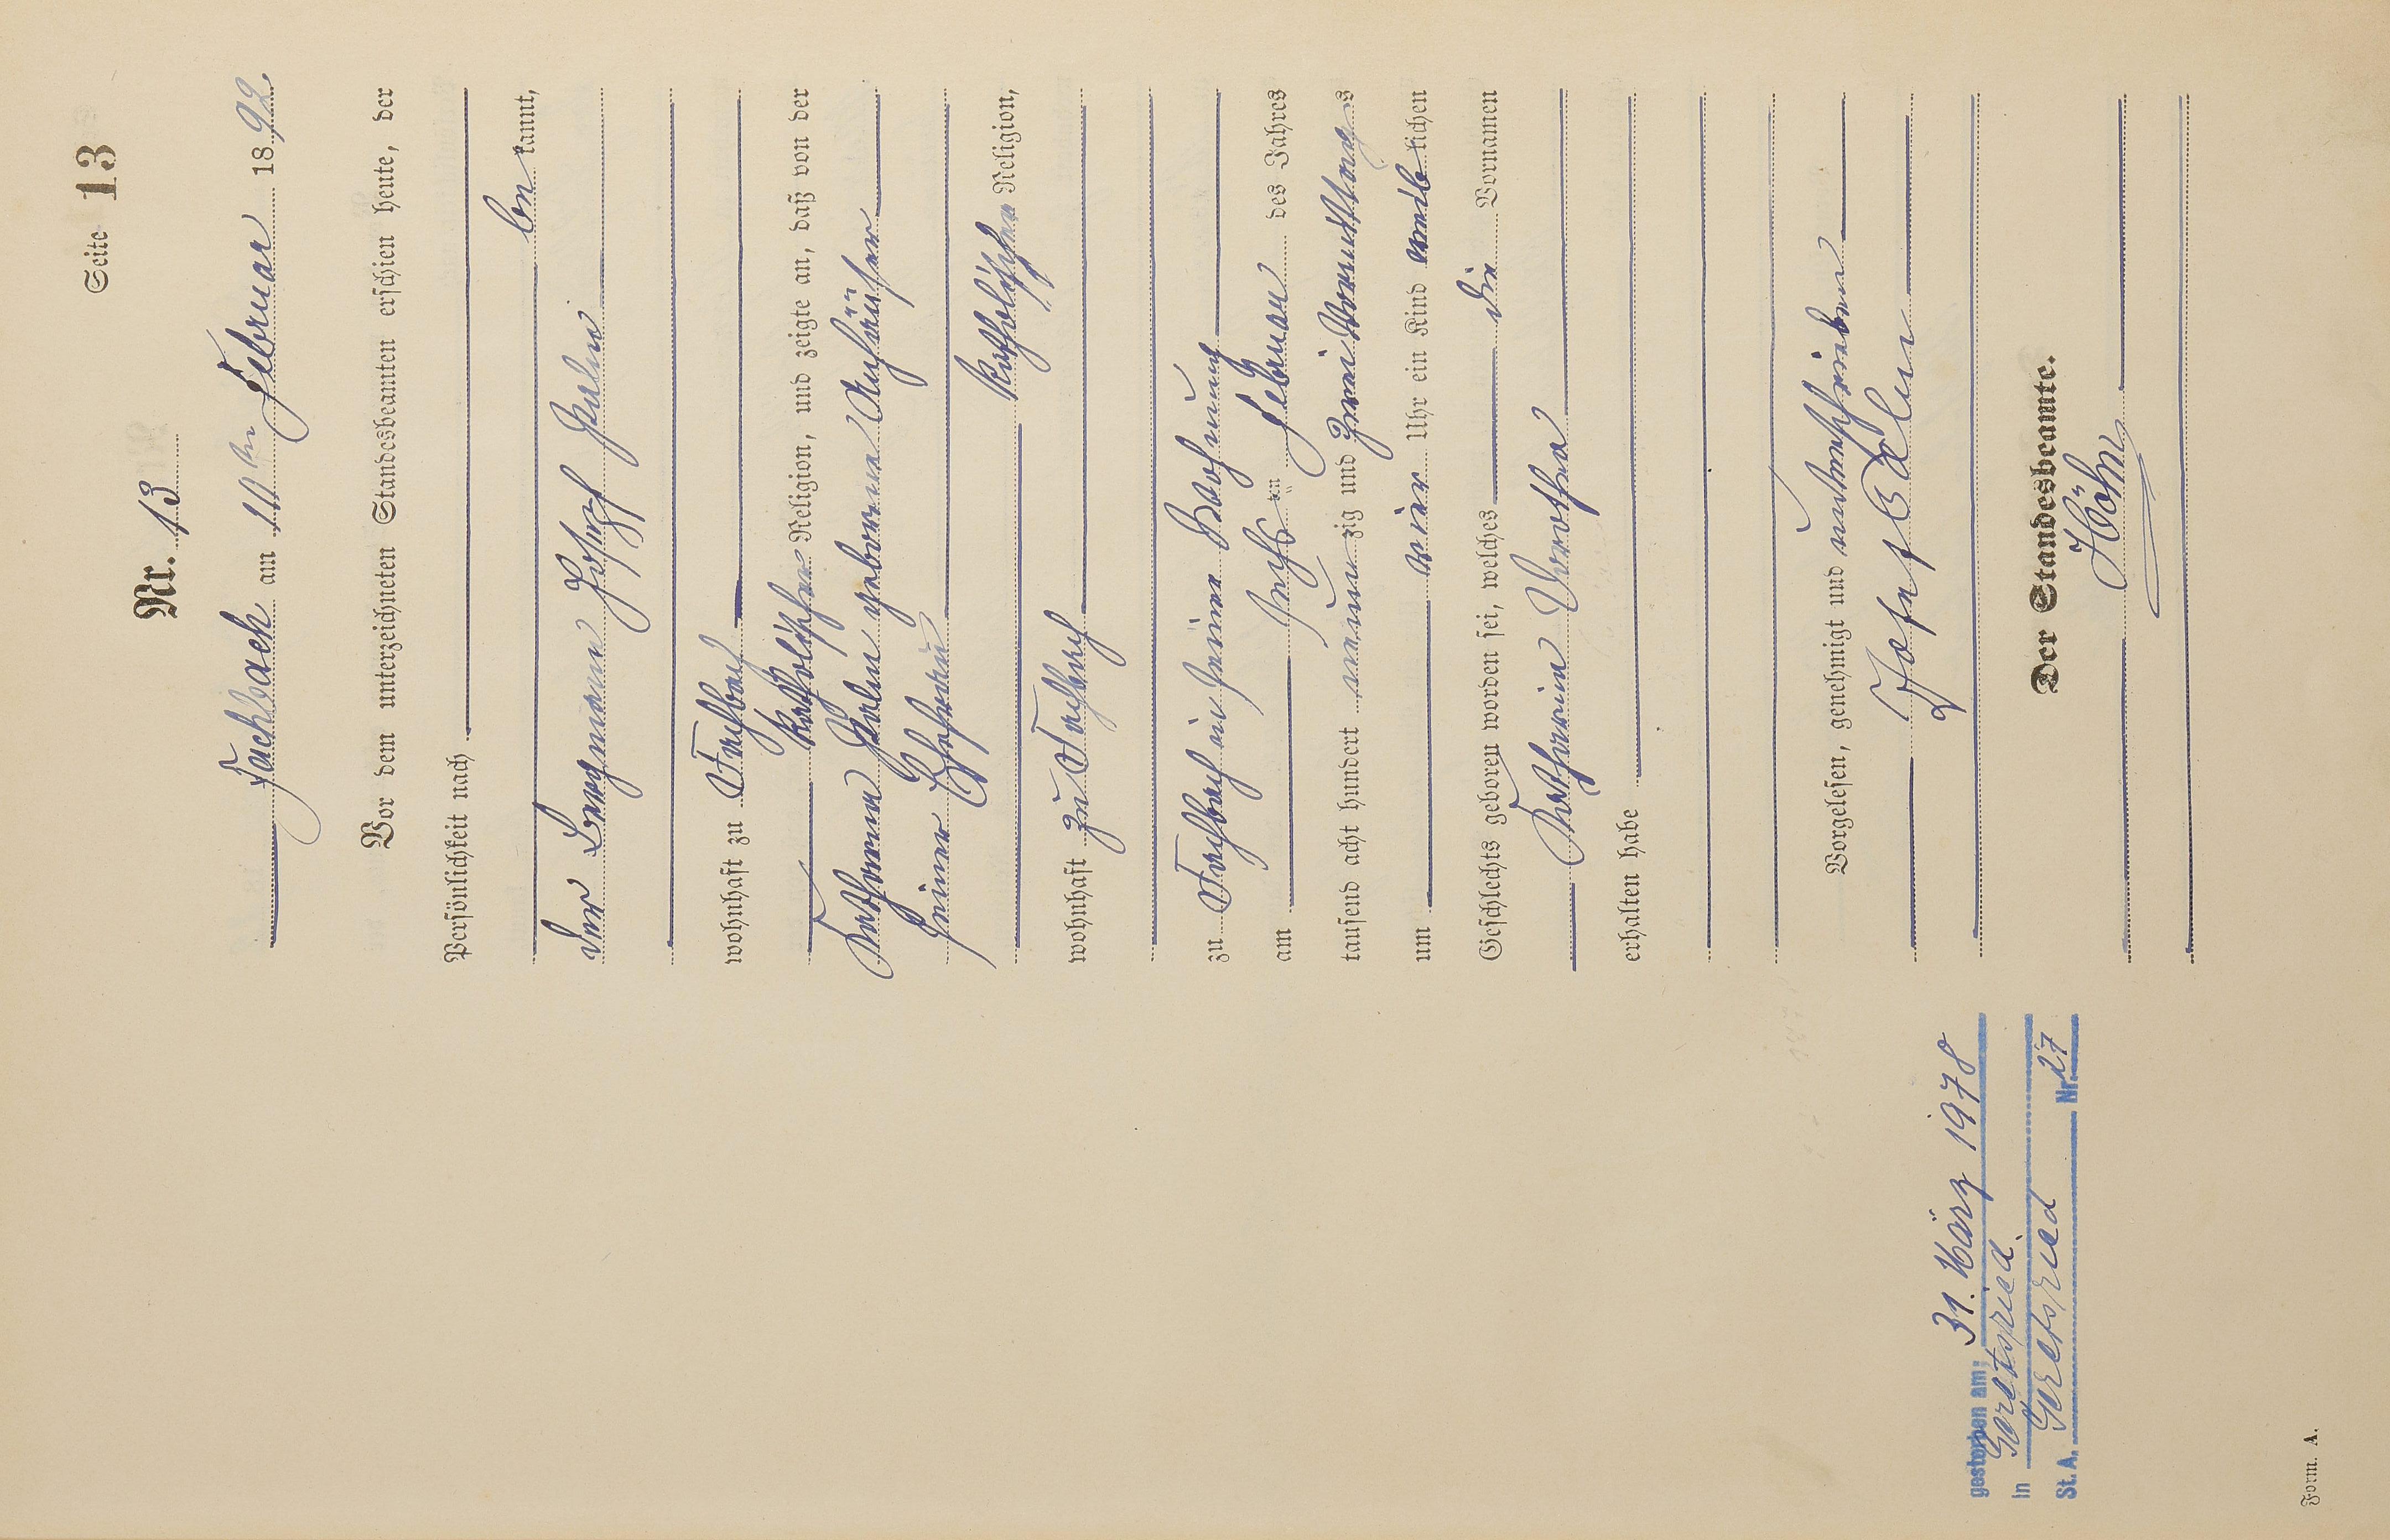 Seite 13
Nr. 13
Fachbach am 11ten Februar 1892.
Vor dem unterzeichneten Standesbeamten erschien heute, der
Persönlichkeit nach
be kannt,
der Bergmann Joseph
wohnhaft zu Fachbach
katholischer Religion, und zeigte an, daß von der
geborene
seiner Ehefrau
katholischer Religion,
wohnhaft zu Fachbach
zu Fachbach in seiner Wohnung
am sechsten Februar des Jahres
tausend acht hundert neunzig und zwei Vormittags
um vier Uhr ein Kind weiblichen
Geschlechts geboren worden sei, welches die Vornamen
Dorothea
erhalten habe
Vorgelesen, genehmigt und unterschrieben
Josef
Der Standesbeamte.
Höhn
gestorben am: 31. März 1978
in Geretsried
St. A. Geretsried Nr. 27
Form. A.